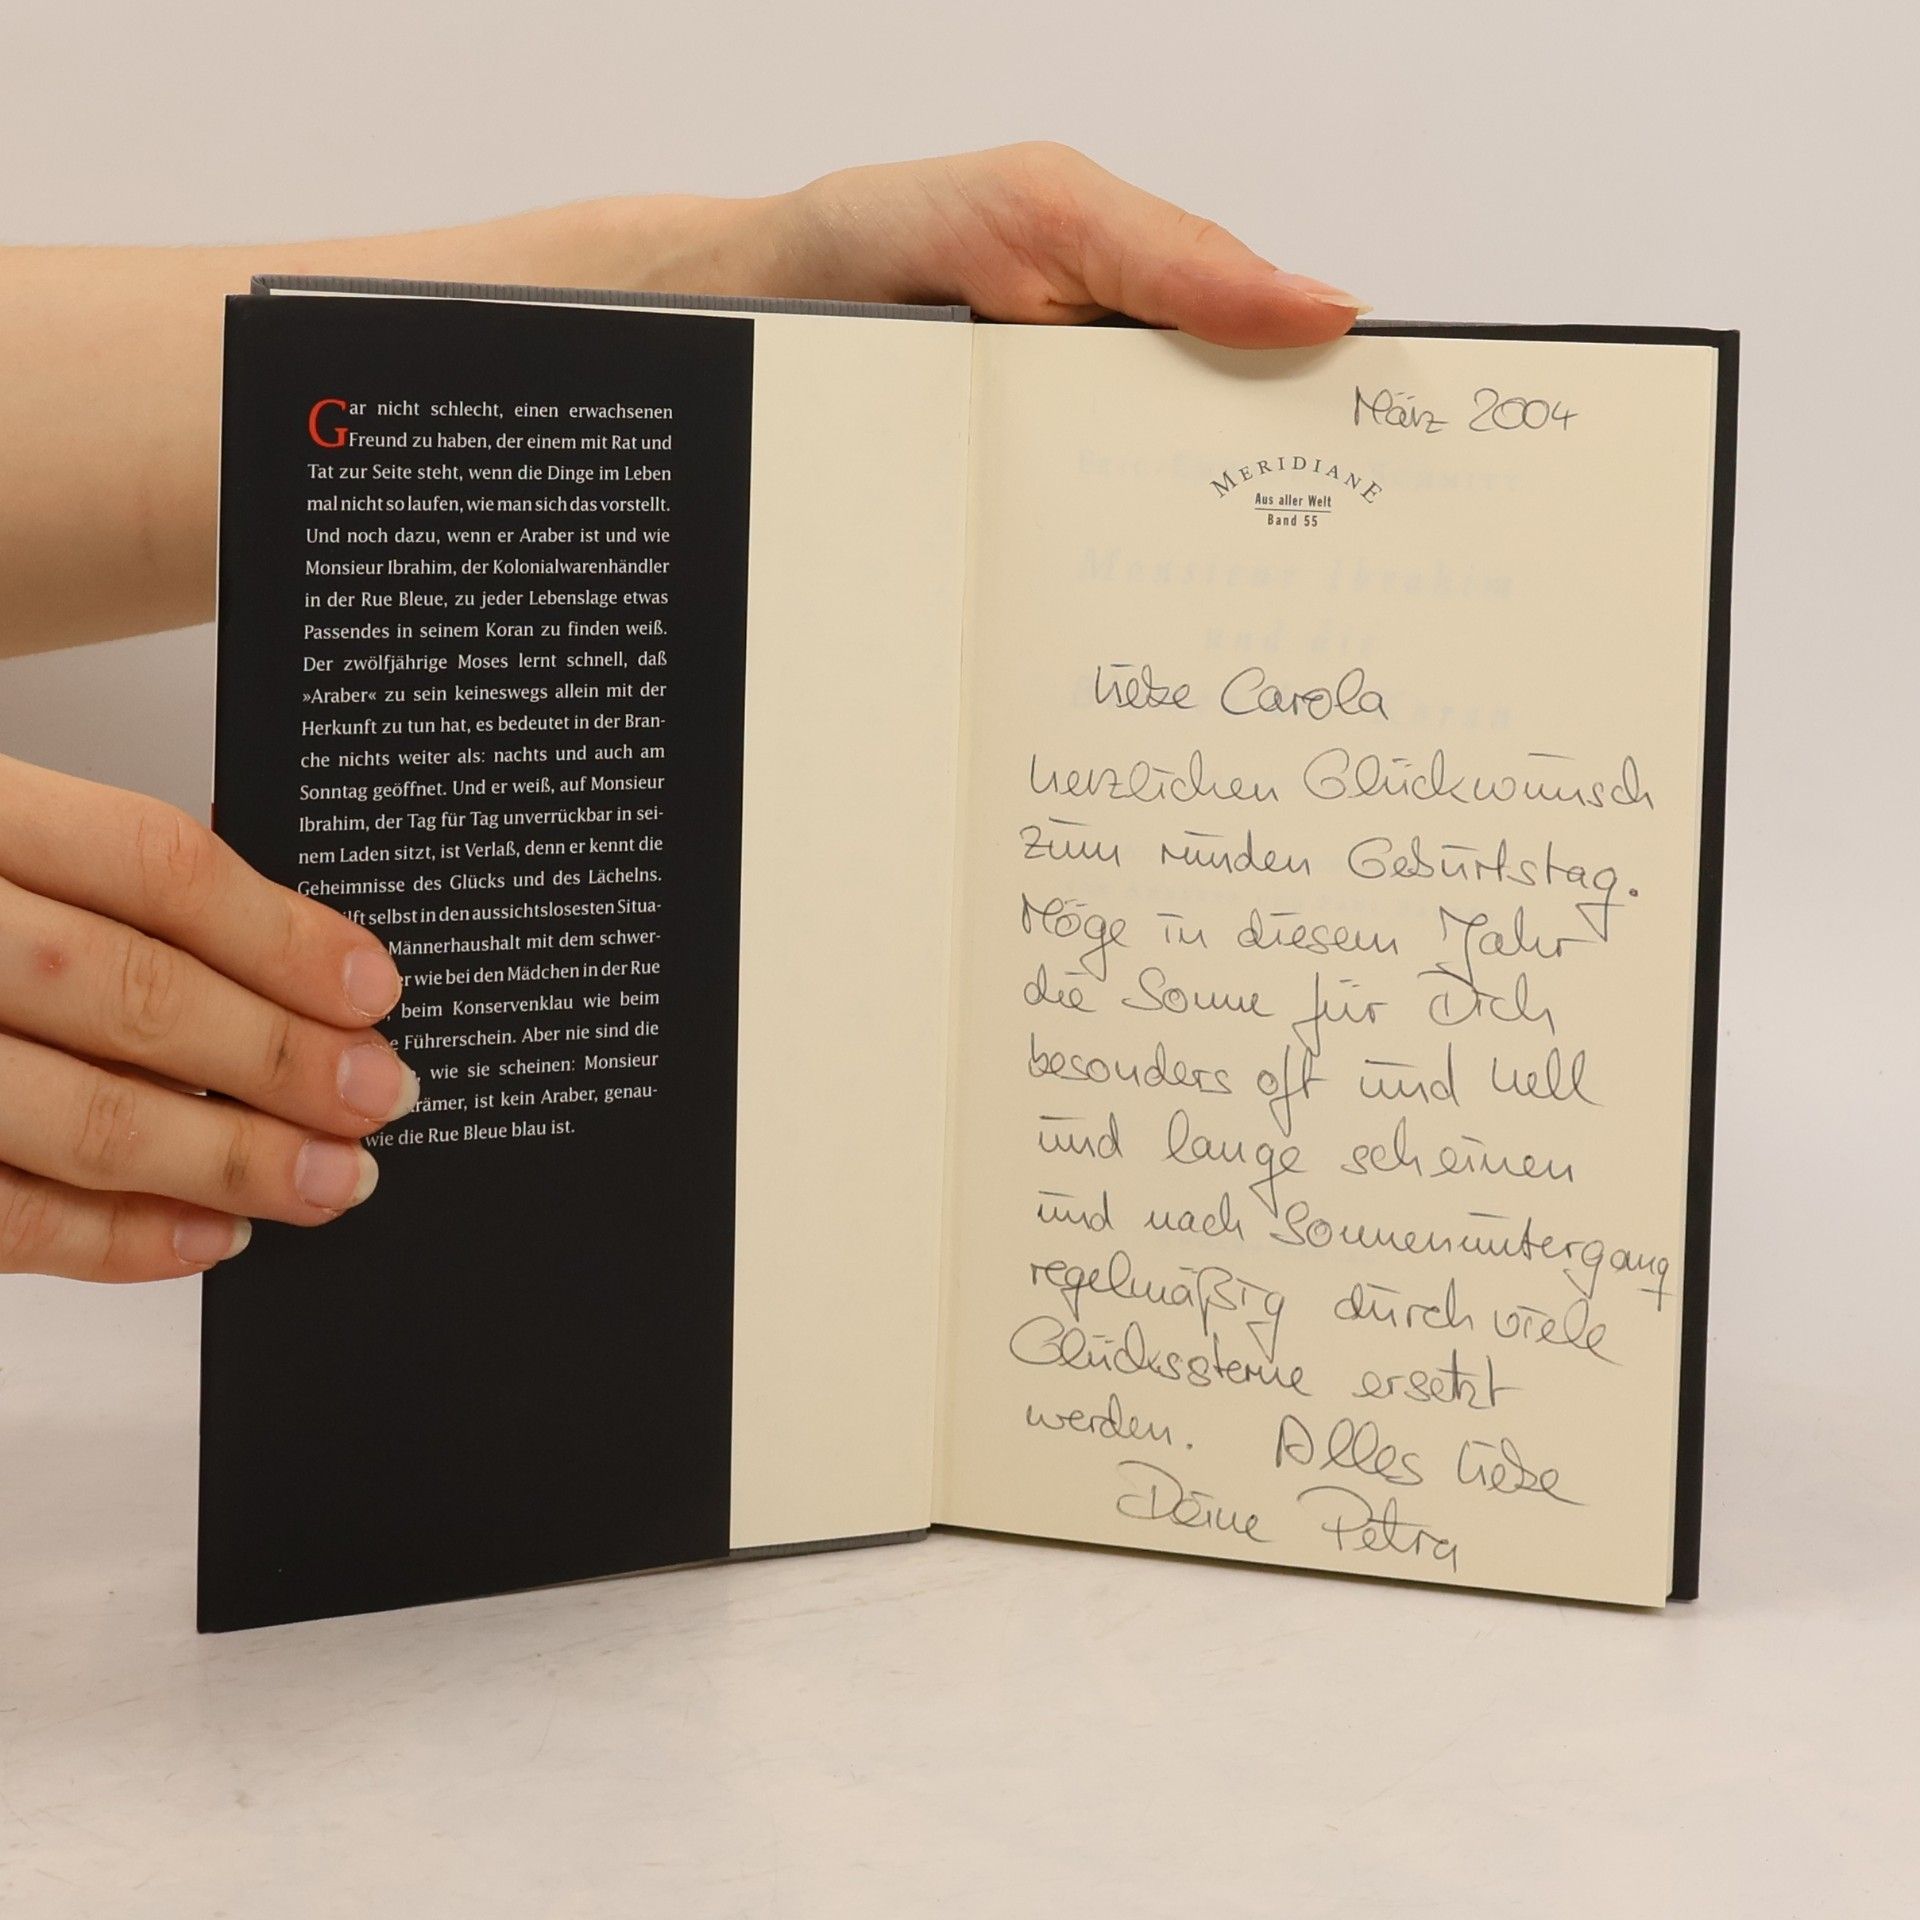 Gar nicht schlecht, einen erwachsenen
Freund zu haben, der einem mit Rat und
Tat zur Seite steht, wenn die Dinge im Leben
mal nicht so laufen, wie man sich das vorstellt.
Und noch dazu, wenn er Araber ist und wie
Monsieur Ibrahim, der Kolonialwarenhändler
in der Rue Bleue, zu jeder Lebenslage etwas
Passendes in seinem Koran zu finden weiß.
Der zwölfjährige Moses lernt schnell, daß
»Araber« zu sein keineswegs allein mit der
Herkunft zu tun hat, es bedeutet in der Bran-
che nichts weiter als: nachts und auch am
Sonntag geöffnet. Und er weiß, auf Monsieur
Ibrahim, der Tag für Tag unverrückbar in sei-
nem Laden sitzt, ist Verlaß, denn er kennt die
Geheimnisse des Glücks und des Lächelns.
selbst in den aussichtslosesten Situa-
Männerhaushalt mit dem schwer-
wie bei den Mädchen in der Rue
beim Konservenklau wie beim
Führerschein. Aber nie sind die
wie sie scheinen: Monsieur
ist kein Araber, genau-
wie die Rue Bleue blau ist.
März 2004
MERIDIANE
Aus aller Welt
Band 55
Monsieur Ibrahim
und die
Koran
Liebe Carola
herzlichen Glückwunsch
zum runden Geburtstag.
Möge in diesem Jahr
die Sonne für Dich
besonders oft und hell
und lange scheinen
und nach Sonnenuntergang
regelmäßig durch viele
Glückssterne ersetzt
werden. Alles Liebe
Deine Petra